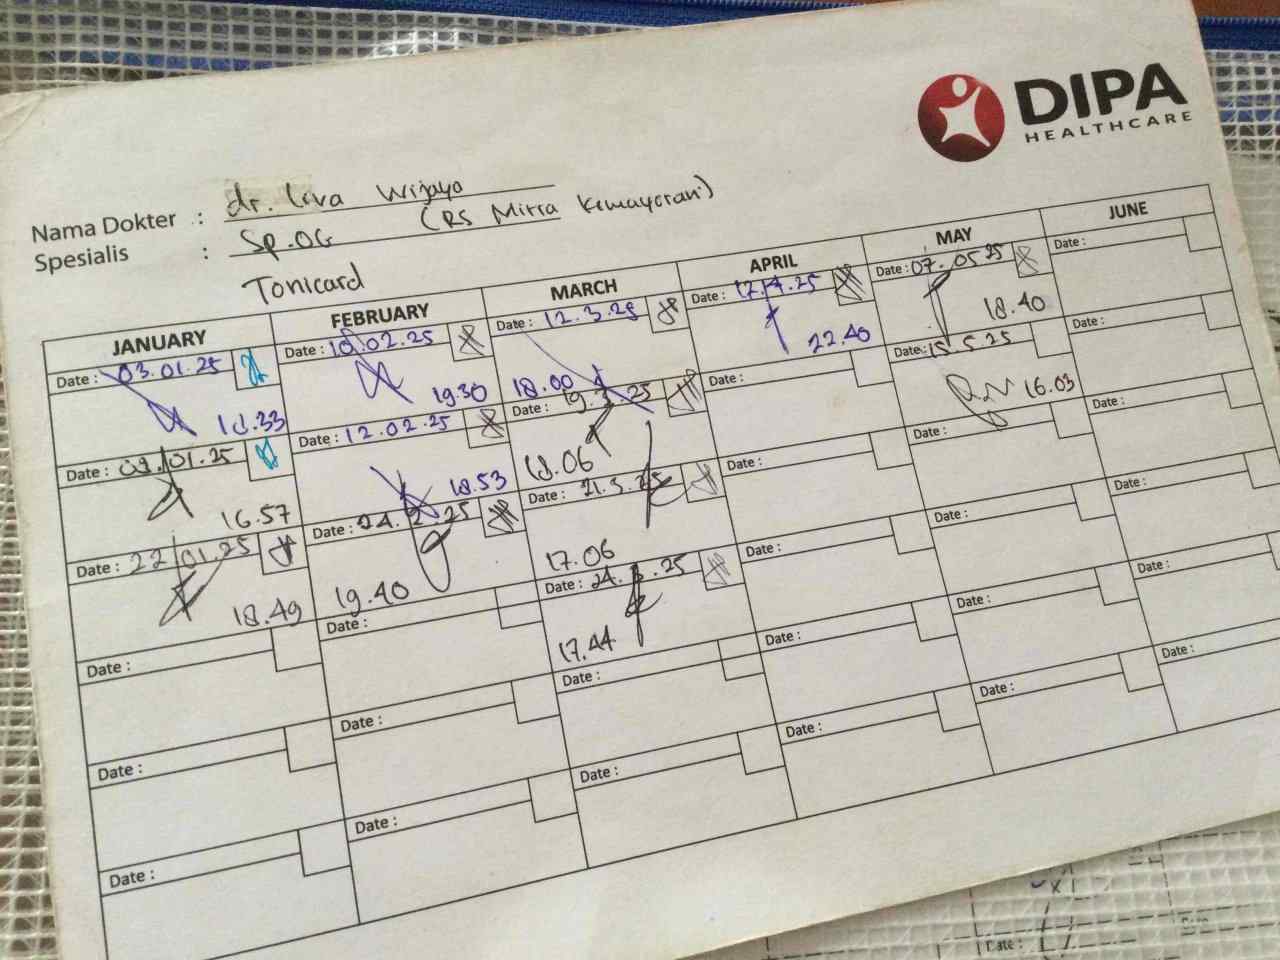 DIPA
HEALTHCARE
Nama Dokter : dr. Liva Wijaya
Spesialis : Sp.OG (RS Mitra Kemayoran)
Tonicard
JANUARY
Date : 03.01.25
18.33
Date : 09.01.25
16.57
Date : 22.01.25
18.49
Date :
Date :
Date :
FEBRUARY
Date : 10.02.25
19.30
Date : 12.02.25
18.53
Date : 24.2.25
19.40
Date :
Date :
Date :
MARCH
Date : 12.3.25
18.00
Date : 19.3.25
18.06
Date : 21.3.25
17.06
Date : 24.3.25
17.44
Date :
Date :
APRIL
Date : 17.4.25
22.40
Date :
Date :
Date :
Date :
Date :
MAY
Date : 07.05.25
18.40
Date : 15.5.25
16.03
Date :
Date :
Date :
Date :
JUNE
Date :
Date :
Date :
Date :
Date :
Date :
Date :